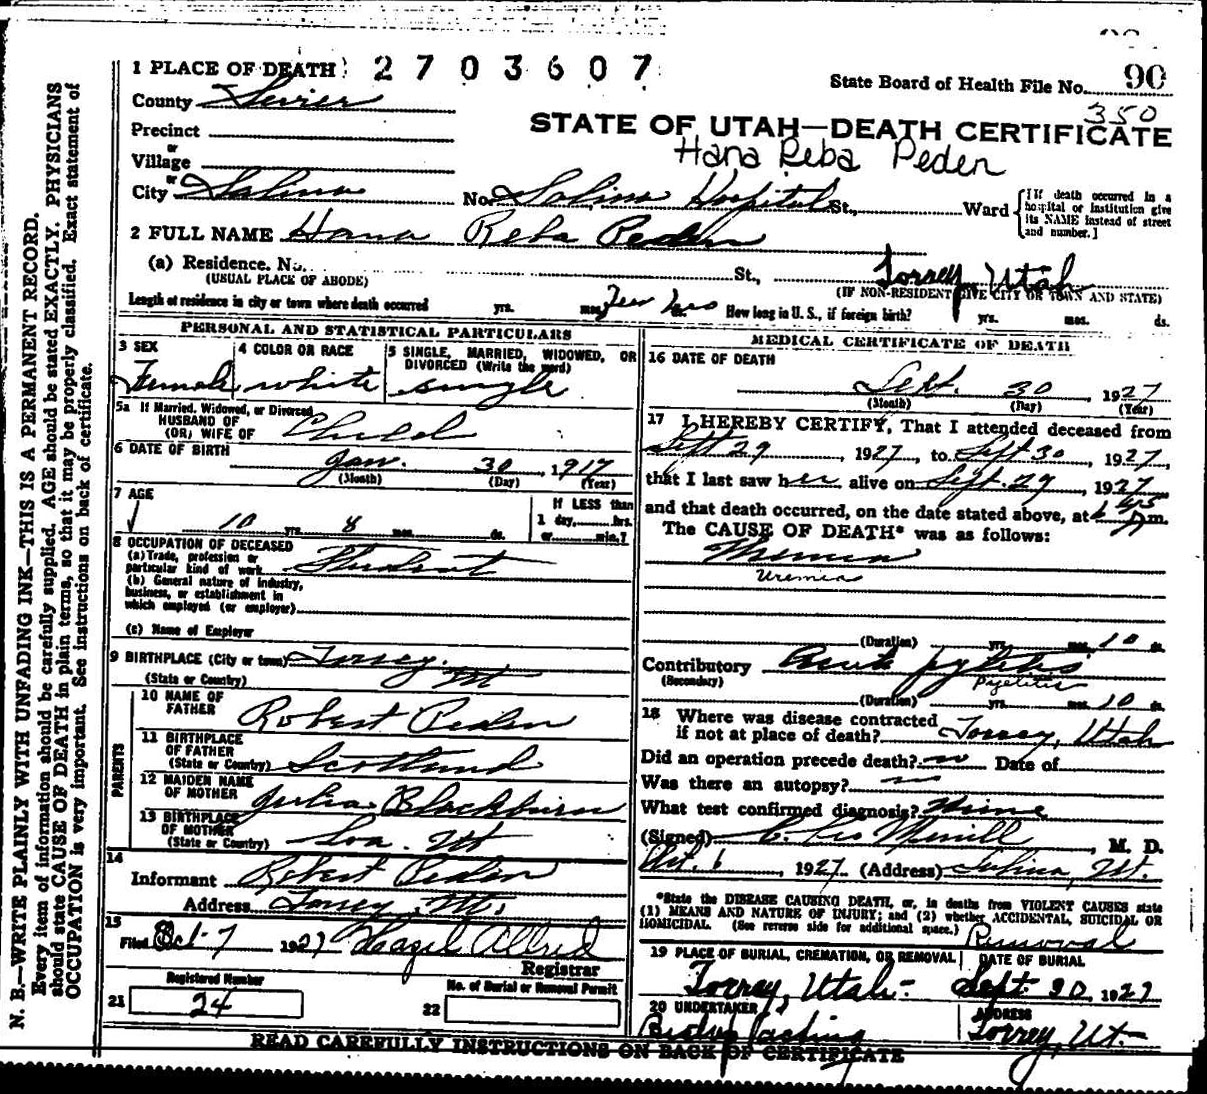 1 PLACE OF DEATH 2703607
State Board of Health File No. 90
350
County Sevier
STATE OF UTAH—DEATH CERTIFICATE
Hana Reba Peden
Precinct
or
Village
or
City Salina No. Salina Hospital St., Ward
[If death occurred in a hospital or institution give its NAME instead of street and number.]
2 FULL NAME Hana Reba Peden
(a) Residence. No. St., Torrey, Utah
(USUAL PLACE OF ABODE) (IF NON-RESIDENT GIVE CITY OR TOWN AND STATE)
Length of residence in city or town where death occurred yrs. mos. Few hrs How long in U. S., if foreign birth? yrs. mos. ds.
PERSONAL AND STATISTICAL PARTICULARS
3 SEX Female
4 COLOR OR RACE white
5 SINGLE, MARRIED, WIDOWED, OR DIVORCED (Write the word) single
5a If Married, Widowed, or Divorced
HUSBAND OF
(OR) WIFE OF Child
6 DATE OF BIRTH Jan. 30, 1917
(Month) (Day) (Year)
7 AGE 10 yrs. 8 mos. ds.
If LESS than
1 day, hrs.
or min.?
8 OCCUPATION OF DECEASED
(a) Trade, profession or
particular kind of work Student
(b) General nature of industry,
business, or establishment in
which employed (or employer)
(c) Name of Employer
9 BIRTHPLACE (City or town) Torrey.
(State or Country) Ut
PARENTS
10 NAME OF FATHER Robert Peden
11 BIRTHPLACE OF FATHER
(State or Country) Scotland
12 MAIDEN NAME OF MOTHER Julia Blackburn
13 BIRTHPLACE OF MOTHER
(State or Country) Loa. Ut
14
Informant Robert Peden
Address Torrey, Ut.
15
Filed Oct-7 1927 Hazel Allred
Registrar
Registered Number
21 24
No. of Burial or Removal Permit
22
MEDICAL CERTIFICATE OF DEATH
16 DATE OF DEATH
Sept. 30, 1927
(Month) (Day) (Year)
17 I HEREBY CERTIFY, That I attended deceased from
Sept 29, 1927, to Sept 30, 1927,
that I last saw her alive on Sept. 29, 1927
and that death occurred, on the date stated above, at m.
The CAUSE OF DEATH* was as follows:
Uremia
Uremia
(Duration) yrs. mos. 10 ds.
Contributory Acute pyelitis
(Secondary) Pyelitis
(Duration) yrs. mos. 10 ds.
18 Where was disease contracted
if not at place of death? Torrey, Utah
Did an operation precede death? no Date of
Was there an autopsy? no
What test confirmed diagnosis? Urine
(Signed) Merrill, M. D.
Oct. 6 1927 (Address) Salina, Ut.
*State the DISEASE CAUSING DEATH, or, in deaths from VIOLENT CAUSES state
(1) MEANS AND NATURE OF INJURY; and (2) whether ACCIDENTAL, SUICIDAL OR
HOMICIDAL. (See reverse side for additional space.) Removal
19 PLACE OF BURIAL, CREMATION, OR REMOVAL DATE OF BURIAL
Torrey, Utah- Sept. 30 1927
20 UNDERTAKER ADDRESS
Torrey, Ut.
READ CAREFULLY INSTRUCTIONS ON BACK OF CERTIFICATE
N. B.—WRITE PLAINLY WITH UNFADING INK—THIS IS A PERMANENT RECORD.
Every item of information should be carefully supplied. AGE should be stated EXACTLY. PHYSICIANS
should state CAUSE OF DEATH in plain terms, so that it may be properly classified. Exact statement of
OCCUPATION is very important. See instructions on back of certificate.